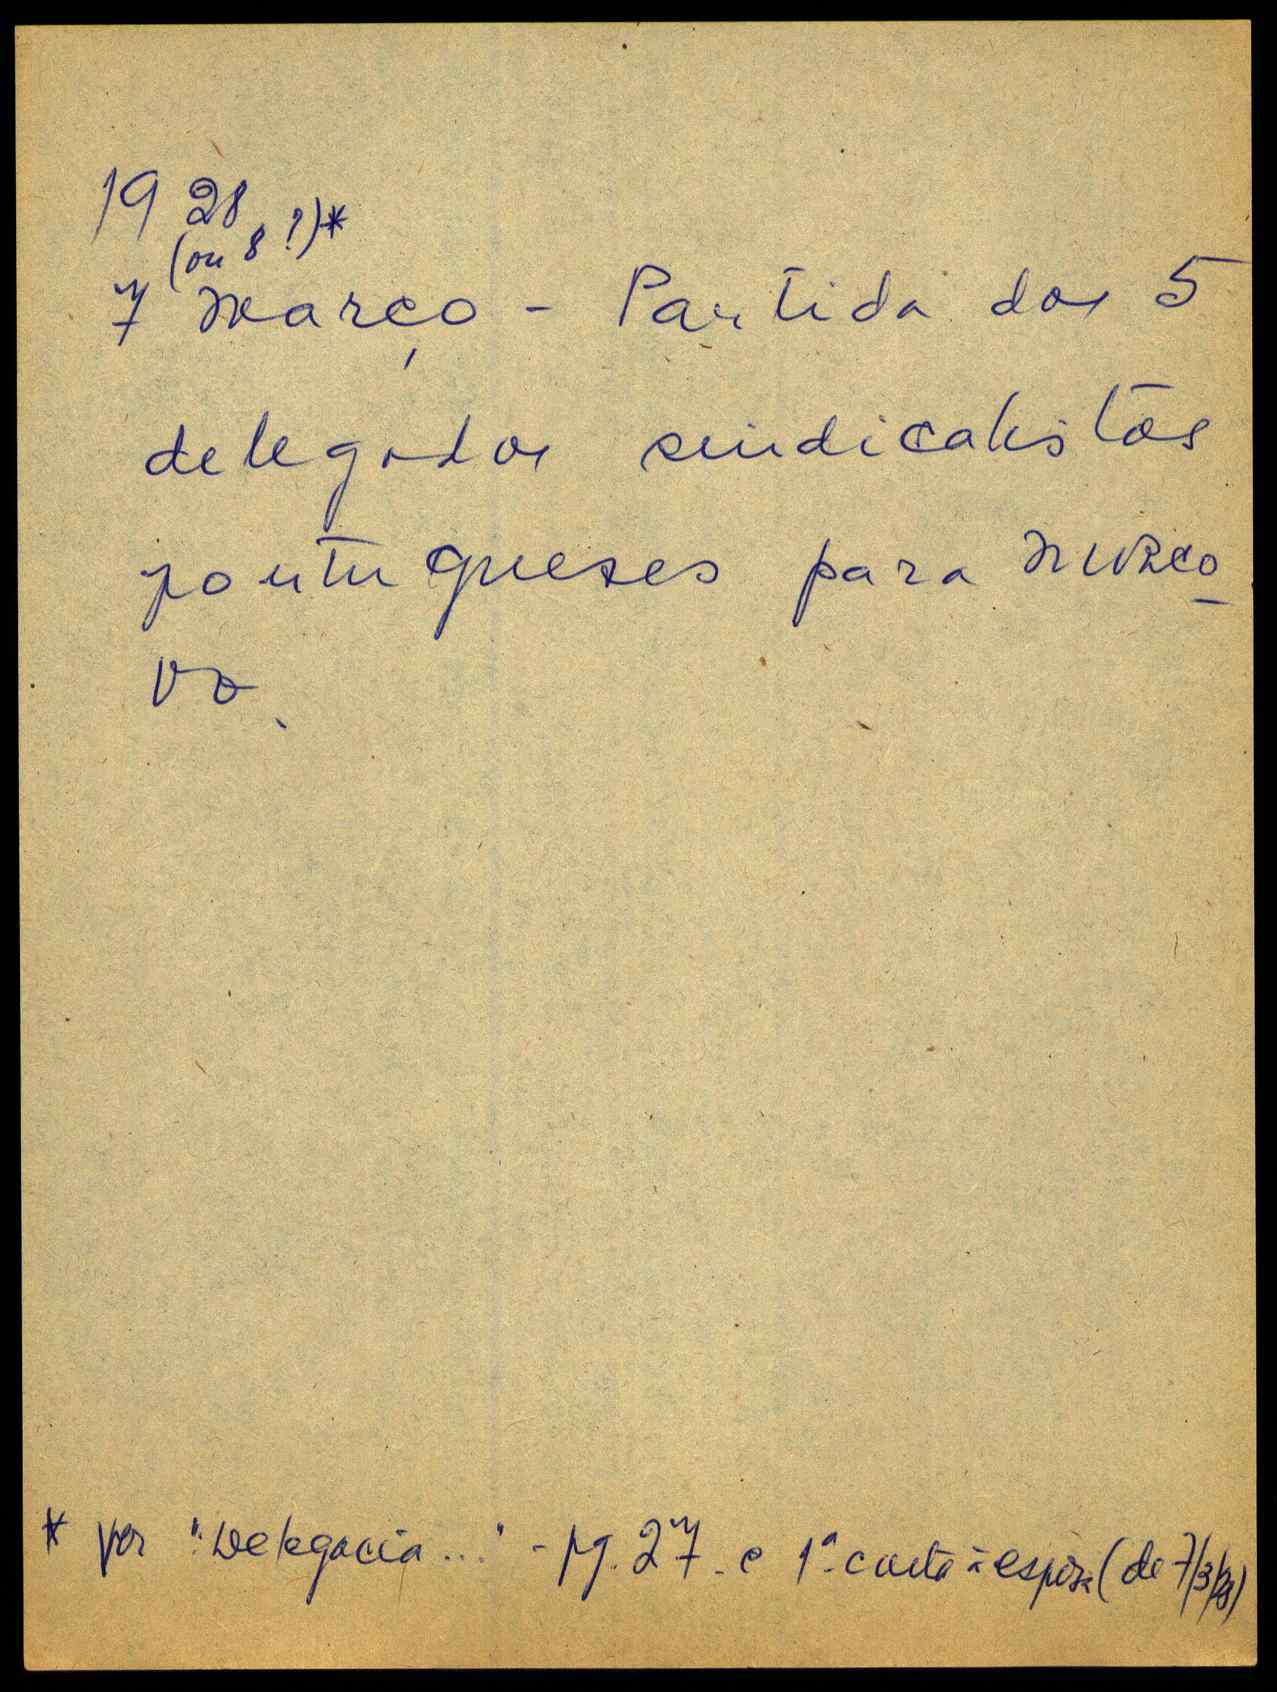 1928
(ou 8 ?)*
7 Março - Partida dos 5
delegados sindicalistas
portugueses para Mosco
va.
* Ver "Delegacia..." - pg. 27 - e 1ª carta à espôsa (de 7/3/28)